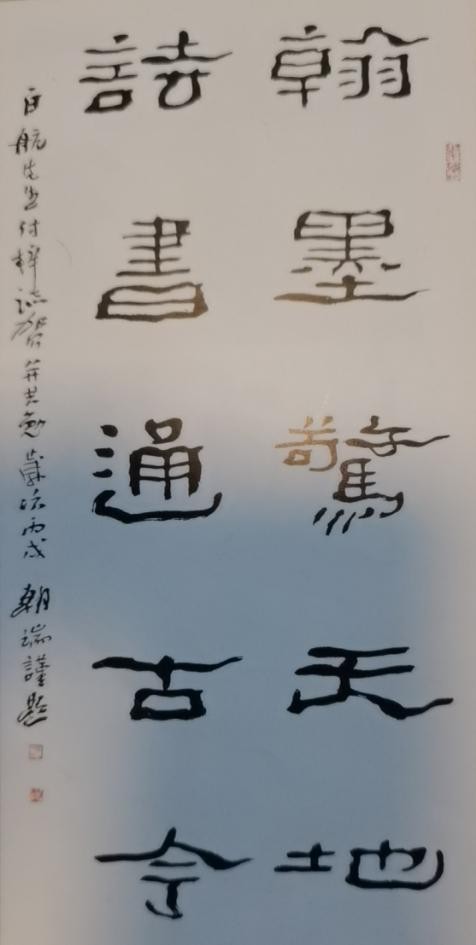 翰墨驚天地
詩書通古今
白航先生付梓誌賀并共勉歲次丙戌 朝瑞謹題